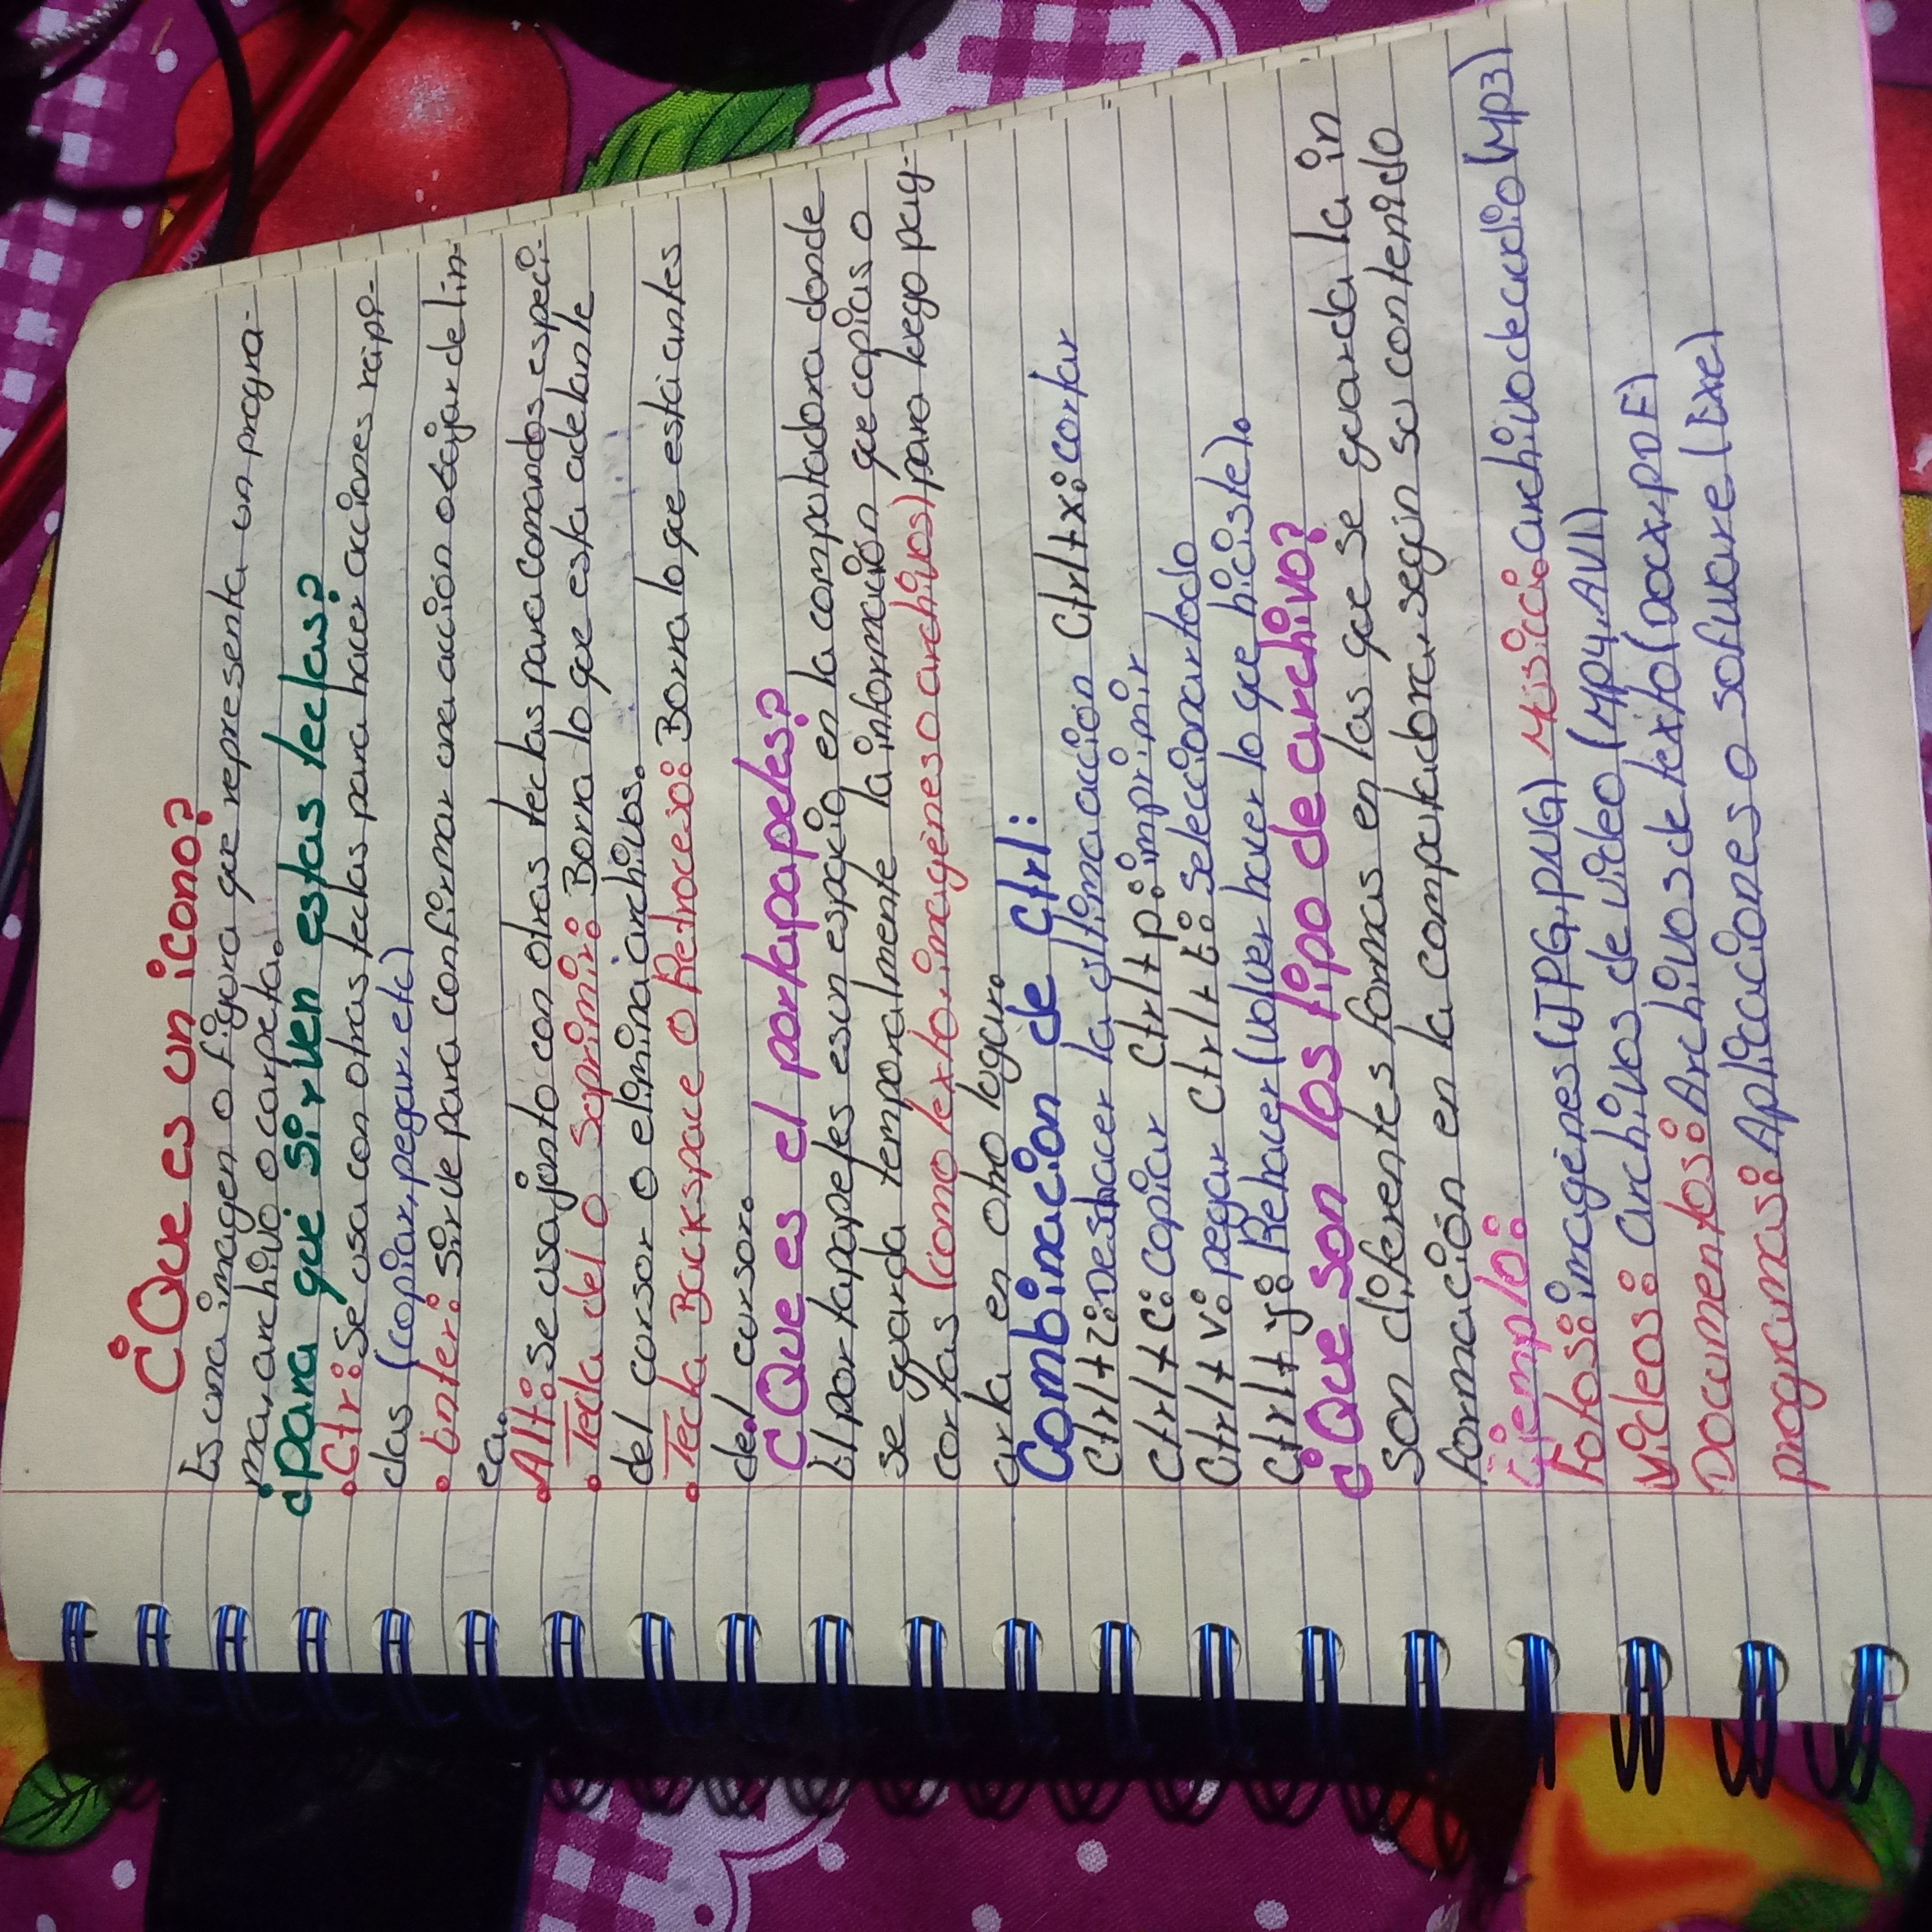 ¿Que es un icono?
Es una imagen o figura que representa un progra-
ma, archivo o carpeta.
¿para qué sirven estas teclas?
• Ctr: Se usa con otras teclas para hacer acciones rápi-
das (copiar, pegar, etc)
• Enter: sirve para confirmar una acción o bajar de lin-
ea.
• Alt: Se usa junto con otras teclas para comandos especi-
• Tecla del o suprimir: Borra lo que esta adelante
del cursor o elimina archivos.
• Tecla Backspace o Retroceso: Borra lo que está antes
del cursor.
¿Que es el portapapeles?
El portapapeles es un espacio en la computadora donde
se guarda temporalmente la información que copias o
cortas (como texto, imagénes o archivos) para luego peg-
arla en otro lugar.
Combinación de Ctrl:
Ctrl+z: Deshacer la última acción Ctrl+x: cortar
Ctrl+c: copiar Ctrl+p: imprimir
Ctrl+v: pegar Ctrl+t: seleccionar todo
Ctrl+y: Rehacer (volver hacer lo que hiciste).
¿Que son los tipo de archivo?
Son diferentes formas en las que se guarda la in
formación en la computadora, según su contenido
Ejemplo:
Fotos: imagénes (JPG, PNG) Musica: archivo de audio (MP3)
Videos: archivos de video (MP4, AVI)
Documentos: Archivos de texto (Docx, PDF)
programas: Aplicaciones o sofware (Exe)